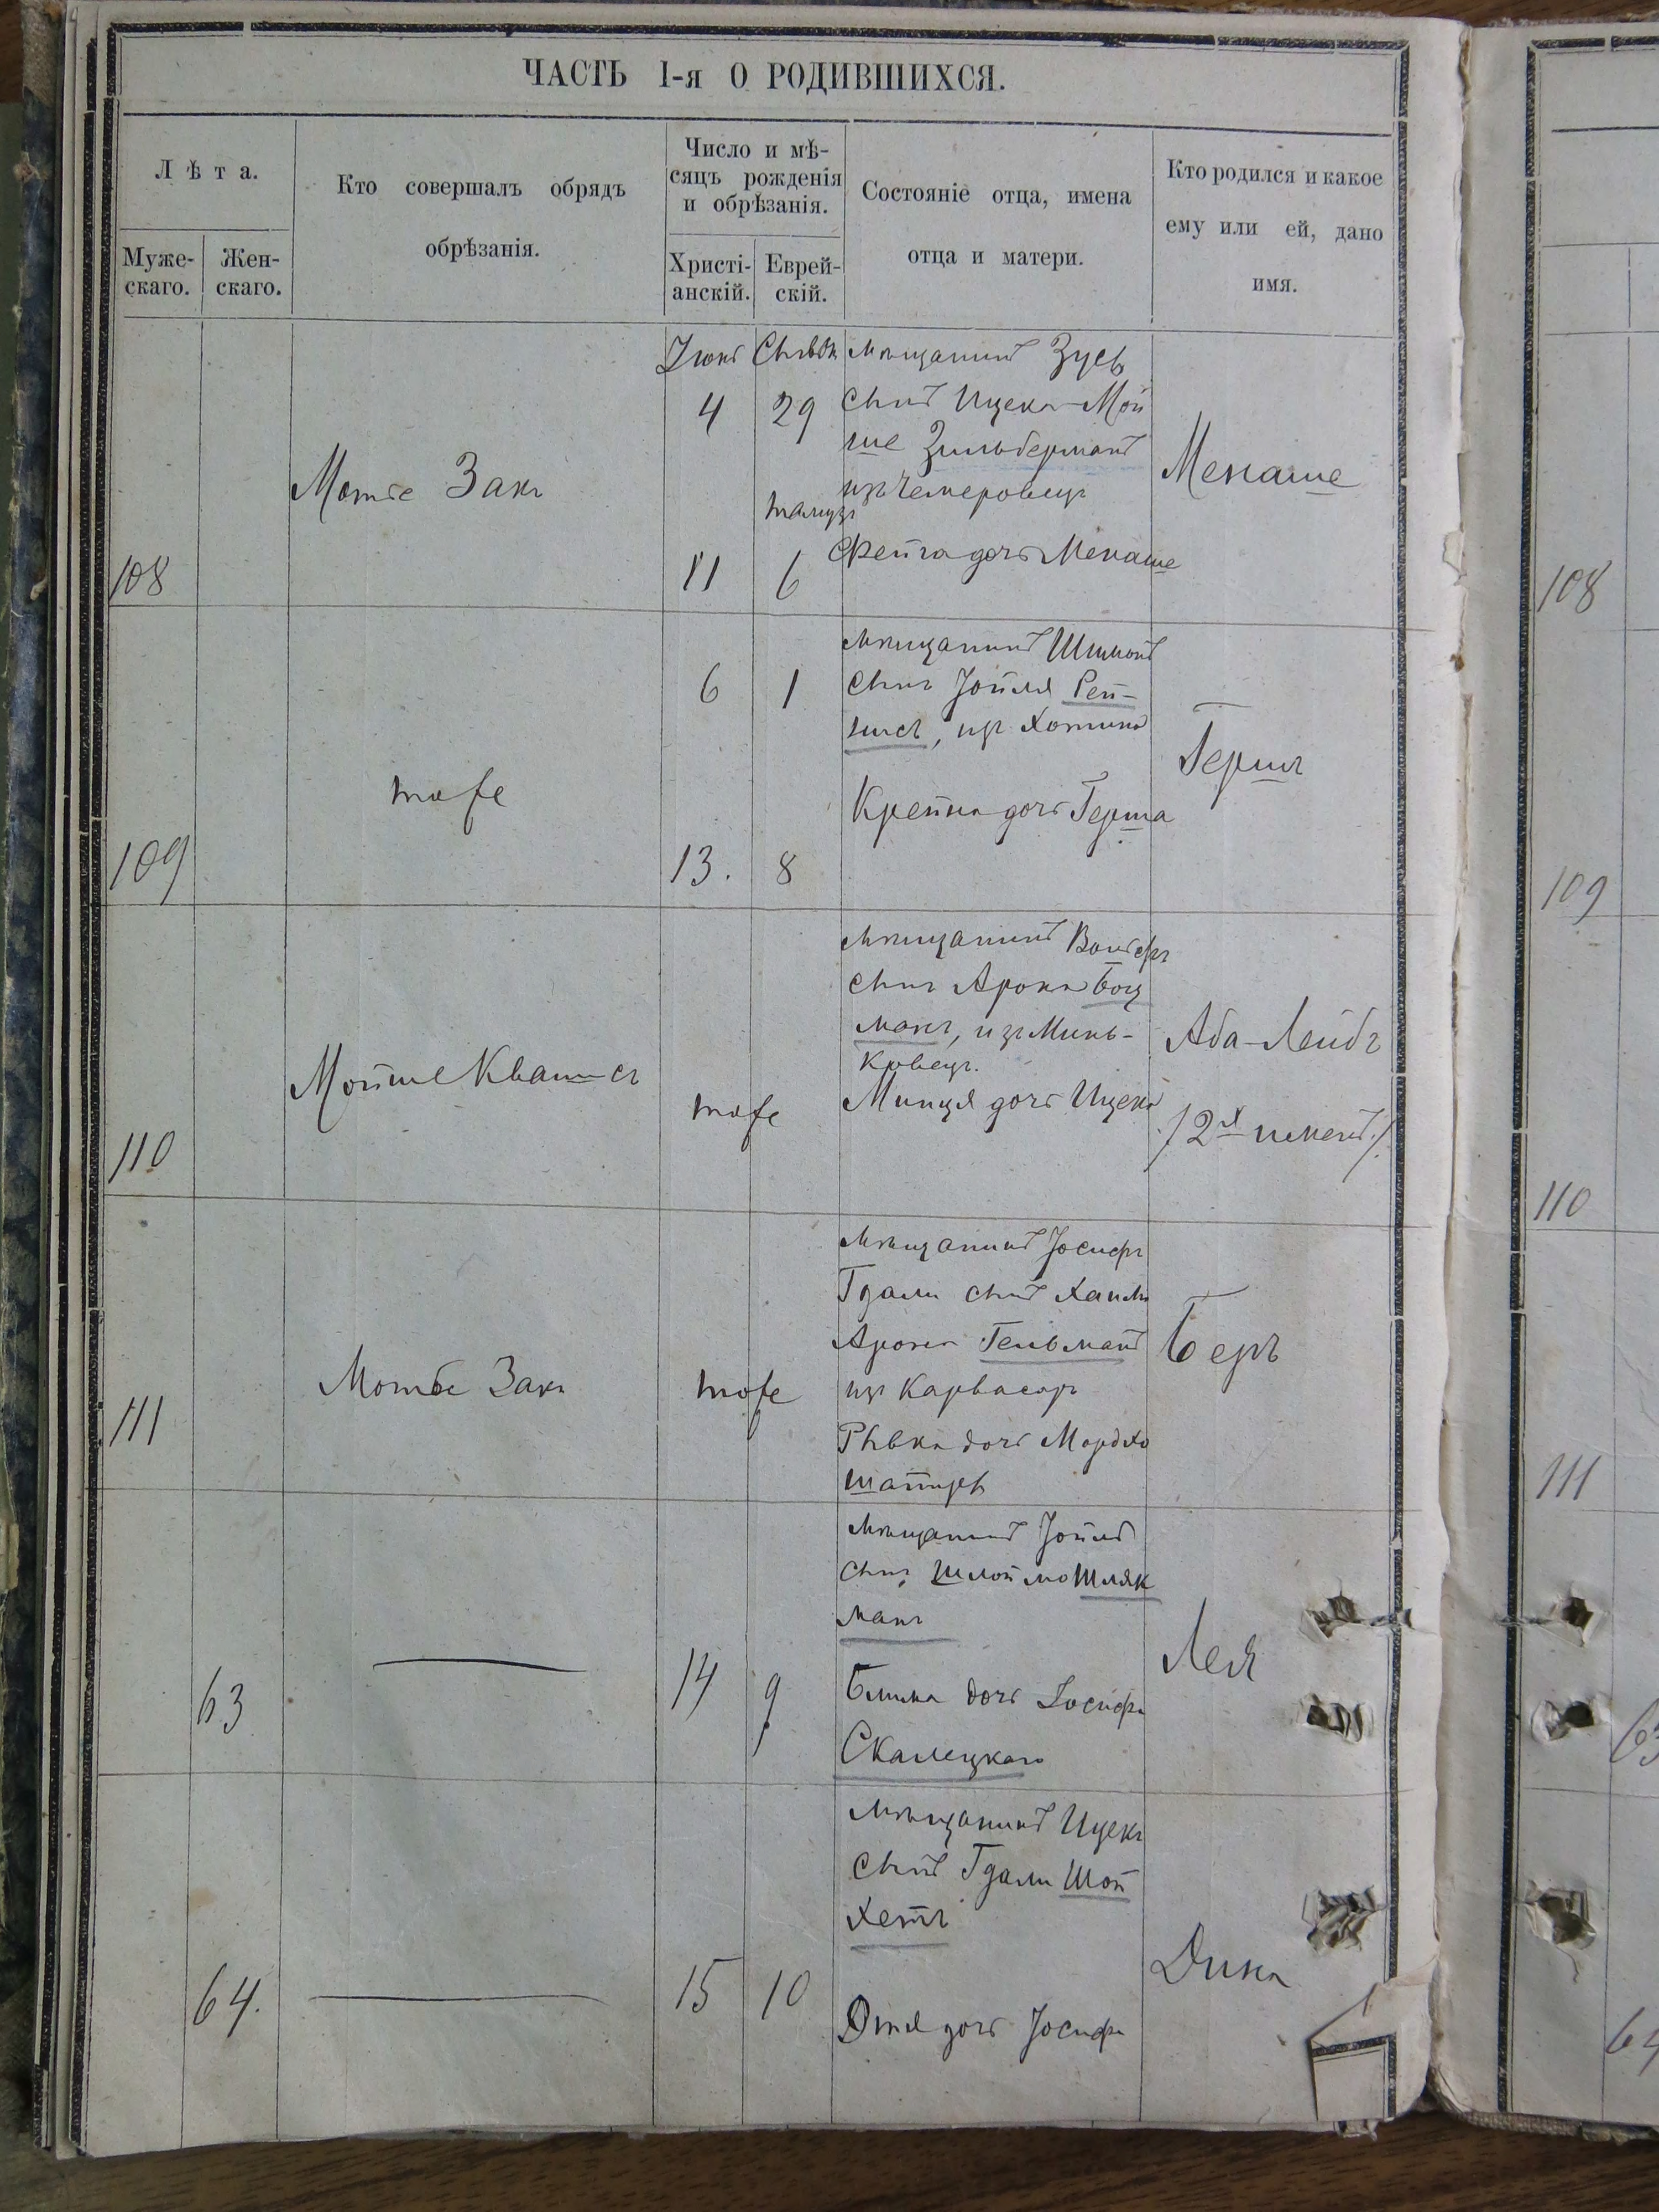 ЧАСТЬ 1-я О РОДИВШИХСЯ.
Лѣта.
Муже-
скаго.
Жен-
скаго.
Кто совершалъ обрядъ
обрѣзанія.
Число и мѣ-
сяцъ рожденія
и обрѣзанія.
Христі-
анскій.
Еврей-
скій.
Состояніе отца, имена
отца и матери.
Кто родился и какое
ему или ей, дано
имя.
108
Мотье Закъ
Іюнь
4
11
29
тамузъ
6
мѣщанинъ Зусь
сынъ Ицека-Мой
ше Зильберманъ
изъ Чемеровецъ
дочь Менаше
Менаше
109
тоже
6
13.
1
8
мѣщанинъ Шимонъ
сынъ Іойля Рей-
, изъ Хотина
Крейна дочь Герша
Гершъ
110
Мойше Квашисъ
тоже
мѣщанинъ Вольфъ
сынъ Арона Боц
манъ, изъ Минь-
ковецъ.
Минця дочь Ицека
Аба-Лейбъ
/2хъ именъ./
111
Мотье Закъ
тоже
мѣщанинъ Іосифъ
Гдали сынъ Хаима
Арона Гельманъ
изъ Карвасаръ
Рывка дочь Мордхо
Шапиръ
Беръ
63
14
9
мѣщанинъ Іойль
сынъ Шлоймо Шляк
манъ
Блима дочь Іосифа
Скалецкаго
Лея
64.
15
10
мѣщанинъ Ицекъ
сынъ Гдали Шой
хетъ
дочь Іосифа
Дина
108
109
110
111
63
64